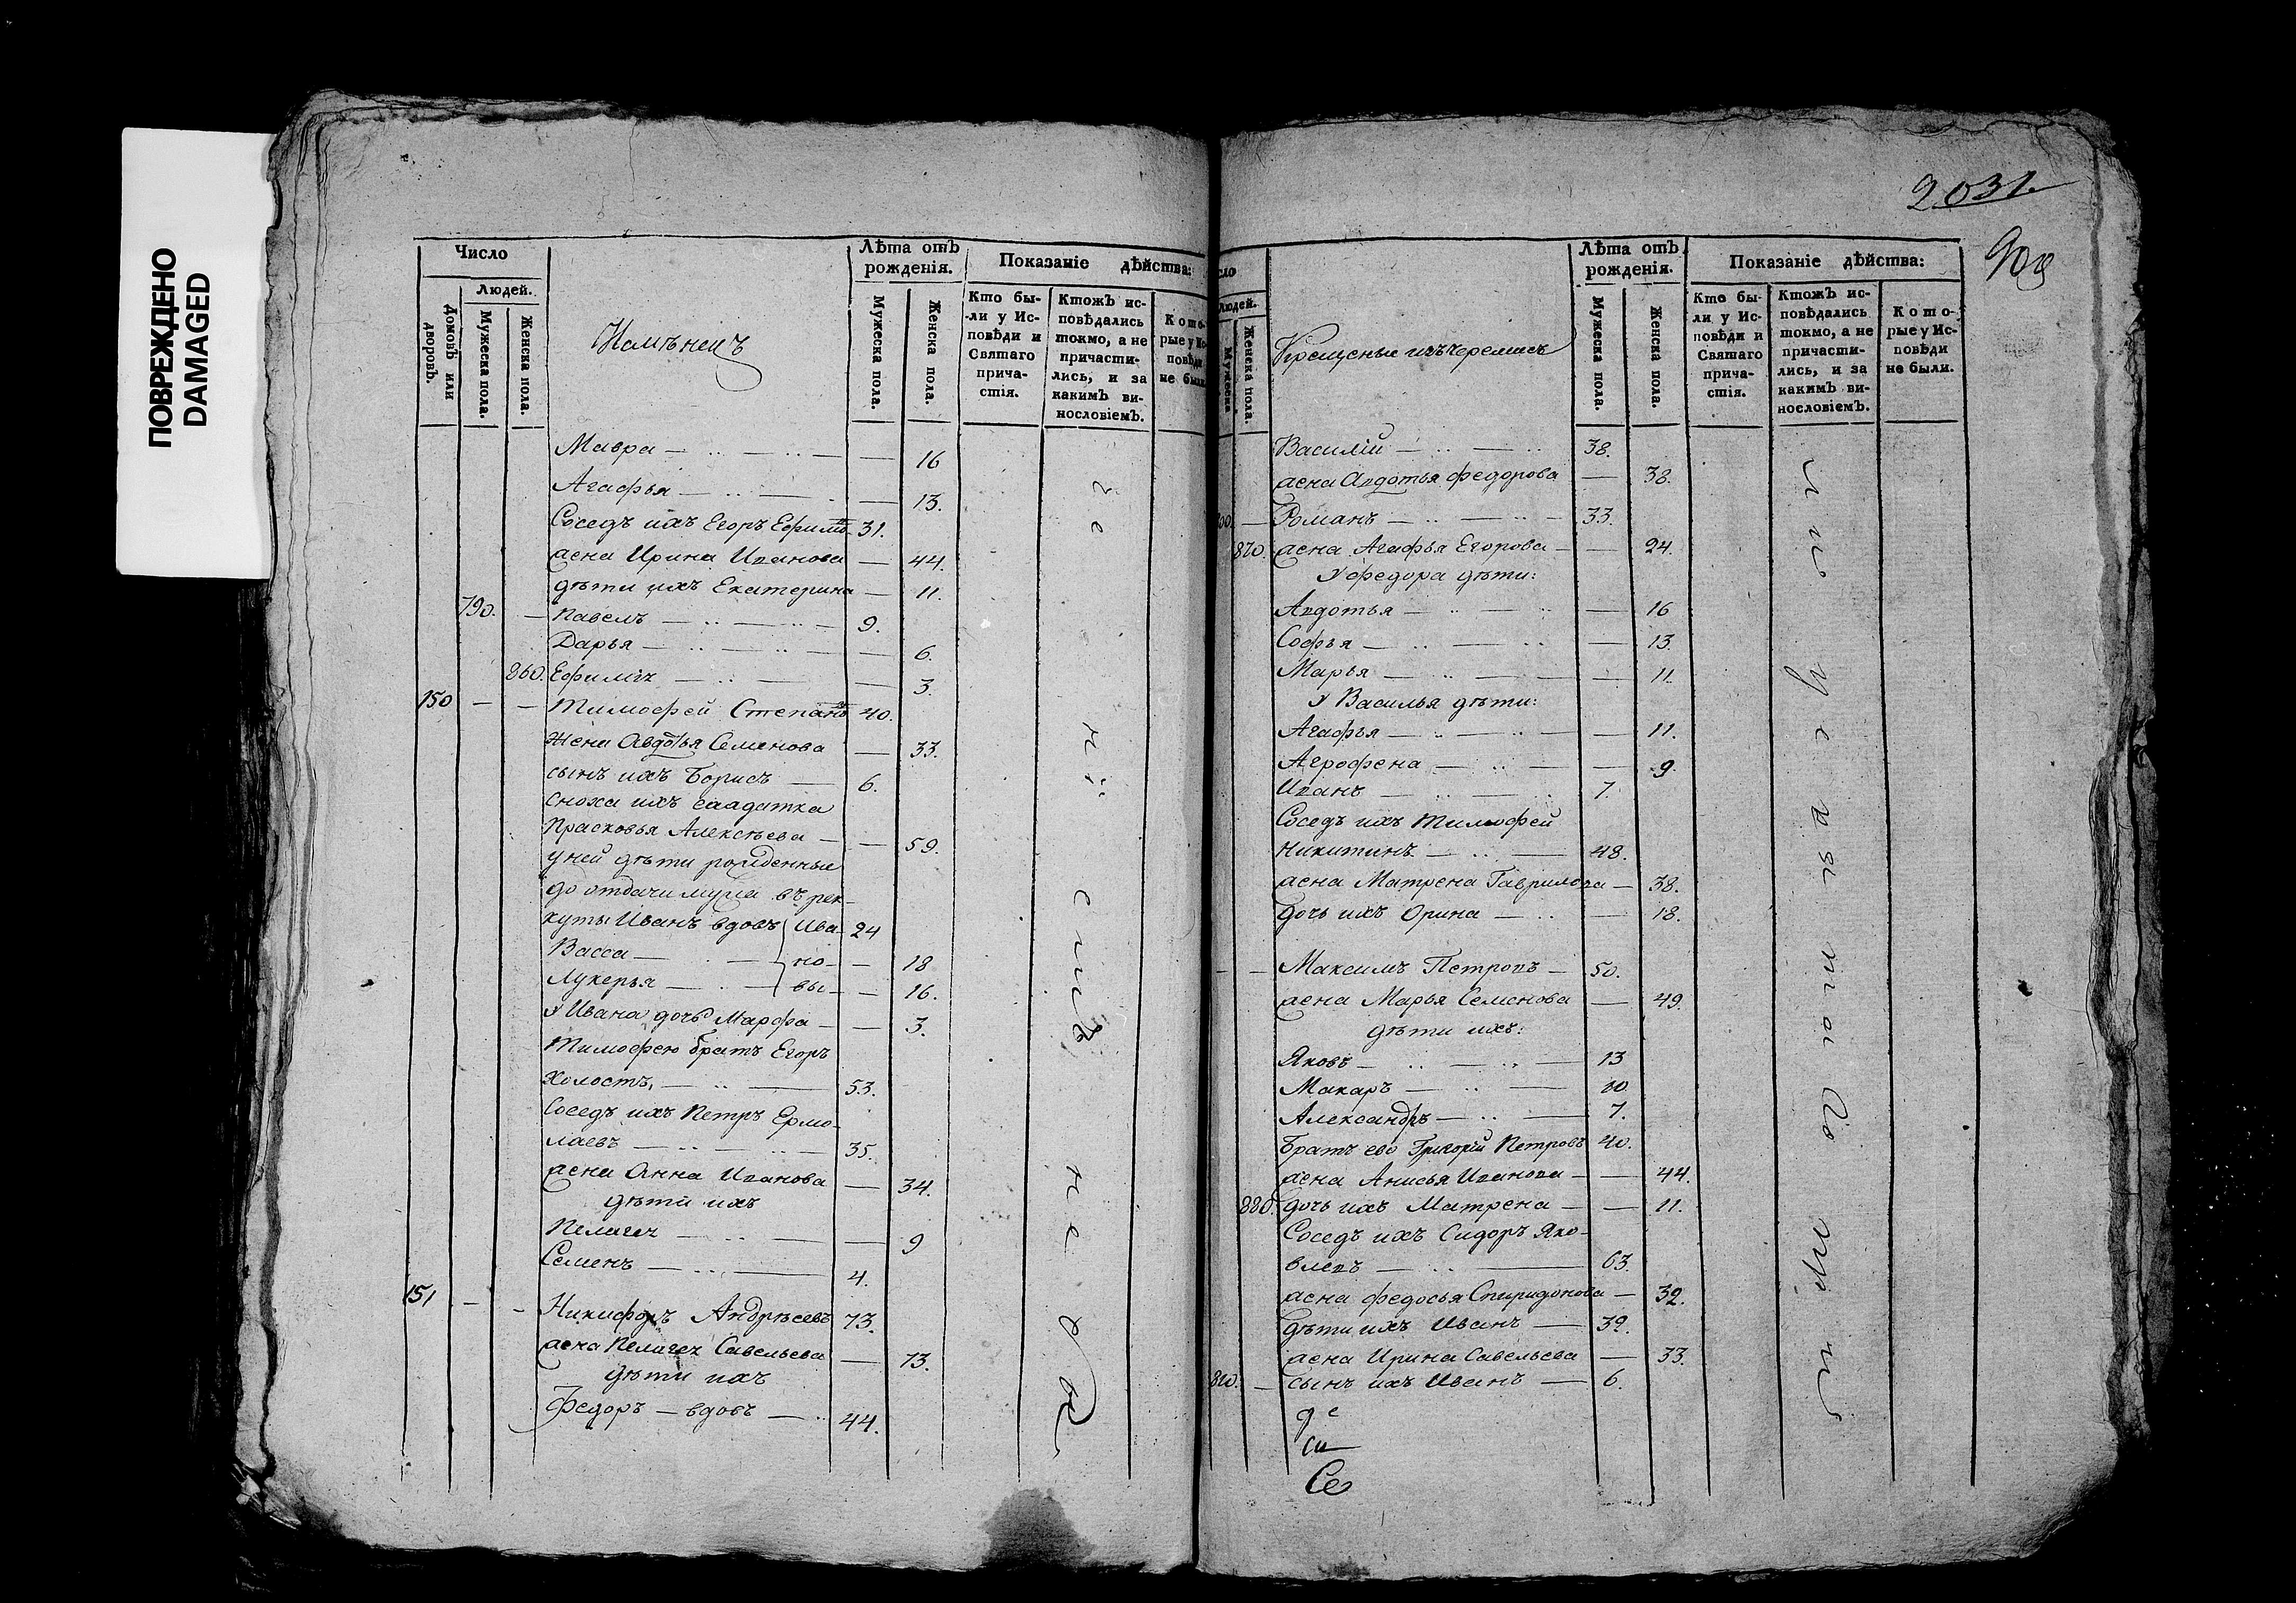 ПОВРЕЖДЕНО
DAMAGED
Число
Людей.
Домовъ или дворовъ.
Мужеска пола.
Женска пола.
Лѣта отъ рожденія.
Мужеска пола.
Женска пола.
Показаніе дѣйства:
Кто бы-
ли у Ис-
повѣди и
Святаго
прича-
стія.
Ктожъ ис-
повѣдались
токмо, а не
причасти-
лись, и за
какимъ ви-
нословіемъ.
Мавра — 16
Агафья — 13.
Соседъ ихъ Егоръ Ефимо 31.
жена Ирина Иванова — 44.
дѣти ихъ Екатерина — 11.
790. — Павелъ — 9.
Дарья — 6.
860. — 3.
150 — — Тимофей Степан 40.
Жена Авдотья Семенова — 33.
сынъ ихъ Борисъ — 6.
сноха ихъ салдатка
Прасковья Алексѣева — 59.
у ней дѣти рожденные
до отдачи мужа въ рек-
руты Иванъ вдовъ Ива- 24
Васса — но- — 18
Лукерья — вы- — 16.
У Ивана дочь Марфа — 3.
Тимофею братъ Егоръ
холостъ, — 53.
Соседъ ихъ Петръ Ермо-
лаевъ — 35.
жена Анна Иванова — 34.
дѣти ихъ
Пелагея — 9
Семенъ — 4.
151 — — Никифоръ Андрѣевъ 73.
жена Пелагея Савельева — 73.
дѣти ихъ
Федоръ — вдовъ — 44.
2031.
Людей.
Женска пола.
Крещеные изъ черемисъ
Лѣта отъ
рожденія.
Мужеска пола.
Женска пола.
Показаніе дѣйства:
Кто бы-
ли у Ис-
повѣди и
Святаго
прича-
стія.
Ктожъ ис-
повѣдались
токмо, а не
причасти-
лись, и за
какимъ ви-
нословіемъ.
Кото-
рые у Ис-
повѣди
не были.
Василій — 38.
жена Авдотья Федорова — 38.
— Романъ — 33.
870. жена Агафья Егорова — 24.
У Федора дѣти:
Авдотья — 16
Софья — 13.
Марья — 11.
У Василья дѣти:
Агафья — 11.
Агрофена — 9.
Иванъ — 7.
Соседъ ихъ Тимофей
Никитинъ — 48.
жена Матрена Гаврилова — 38.
дочь ихъ Орина — 18.
— — Максимъ Петровъ — 50.
жена Марья Семенова — 49.
дѣти ихъ:
Яковъ — 13
Макаръ — 10
Александръ — 7.
братъ ево Григорій Петровъ 40.
жена Анисья Иванова — 44.
880. дочь ихъ Матрена — 11.
Соседъ ихъ Сидоръ Яко-
влевъ — 63.
жена Федосья Спиридонова — 32.
дѣти ихъ Иванъ — 32.
жена Ирина Савельева — 33.
810. — сынъ ихъ Иванъ — 6.